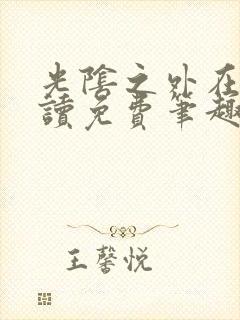 光陰之外在
讀免費筆趣
王馨悦